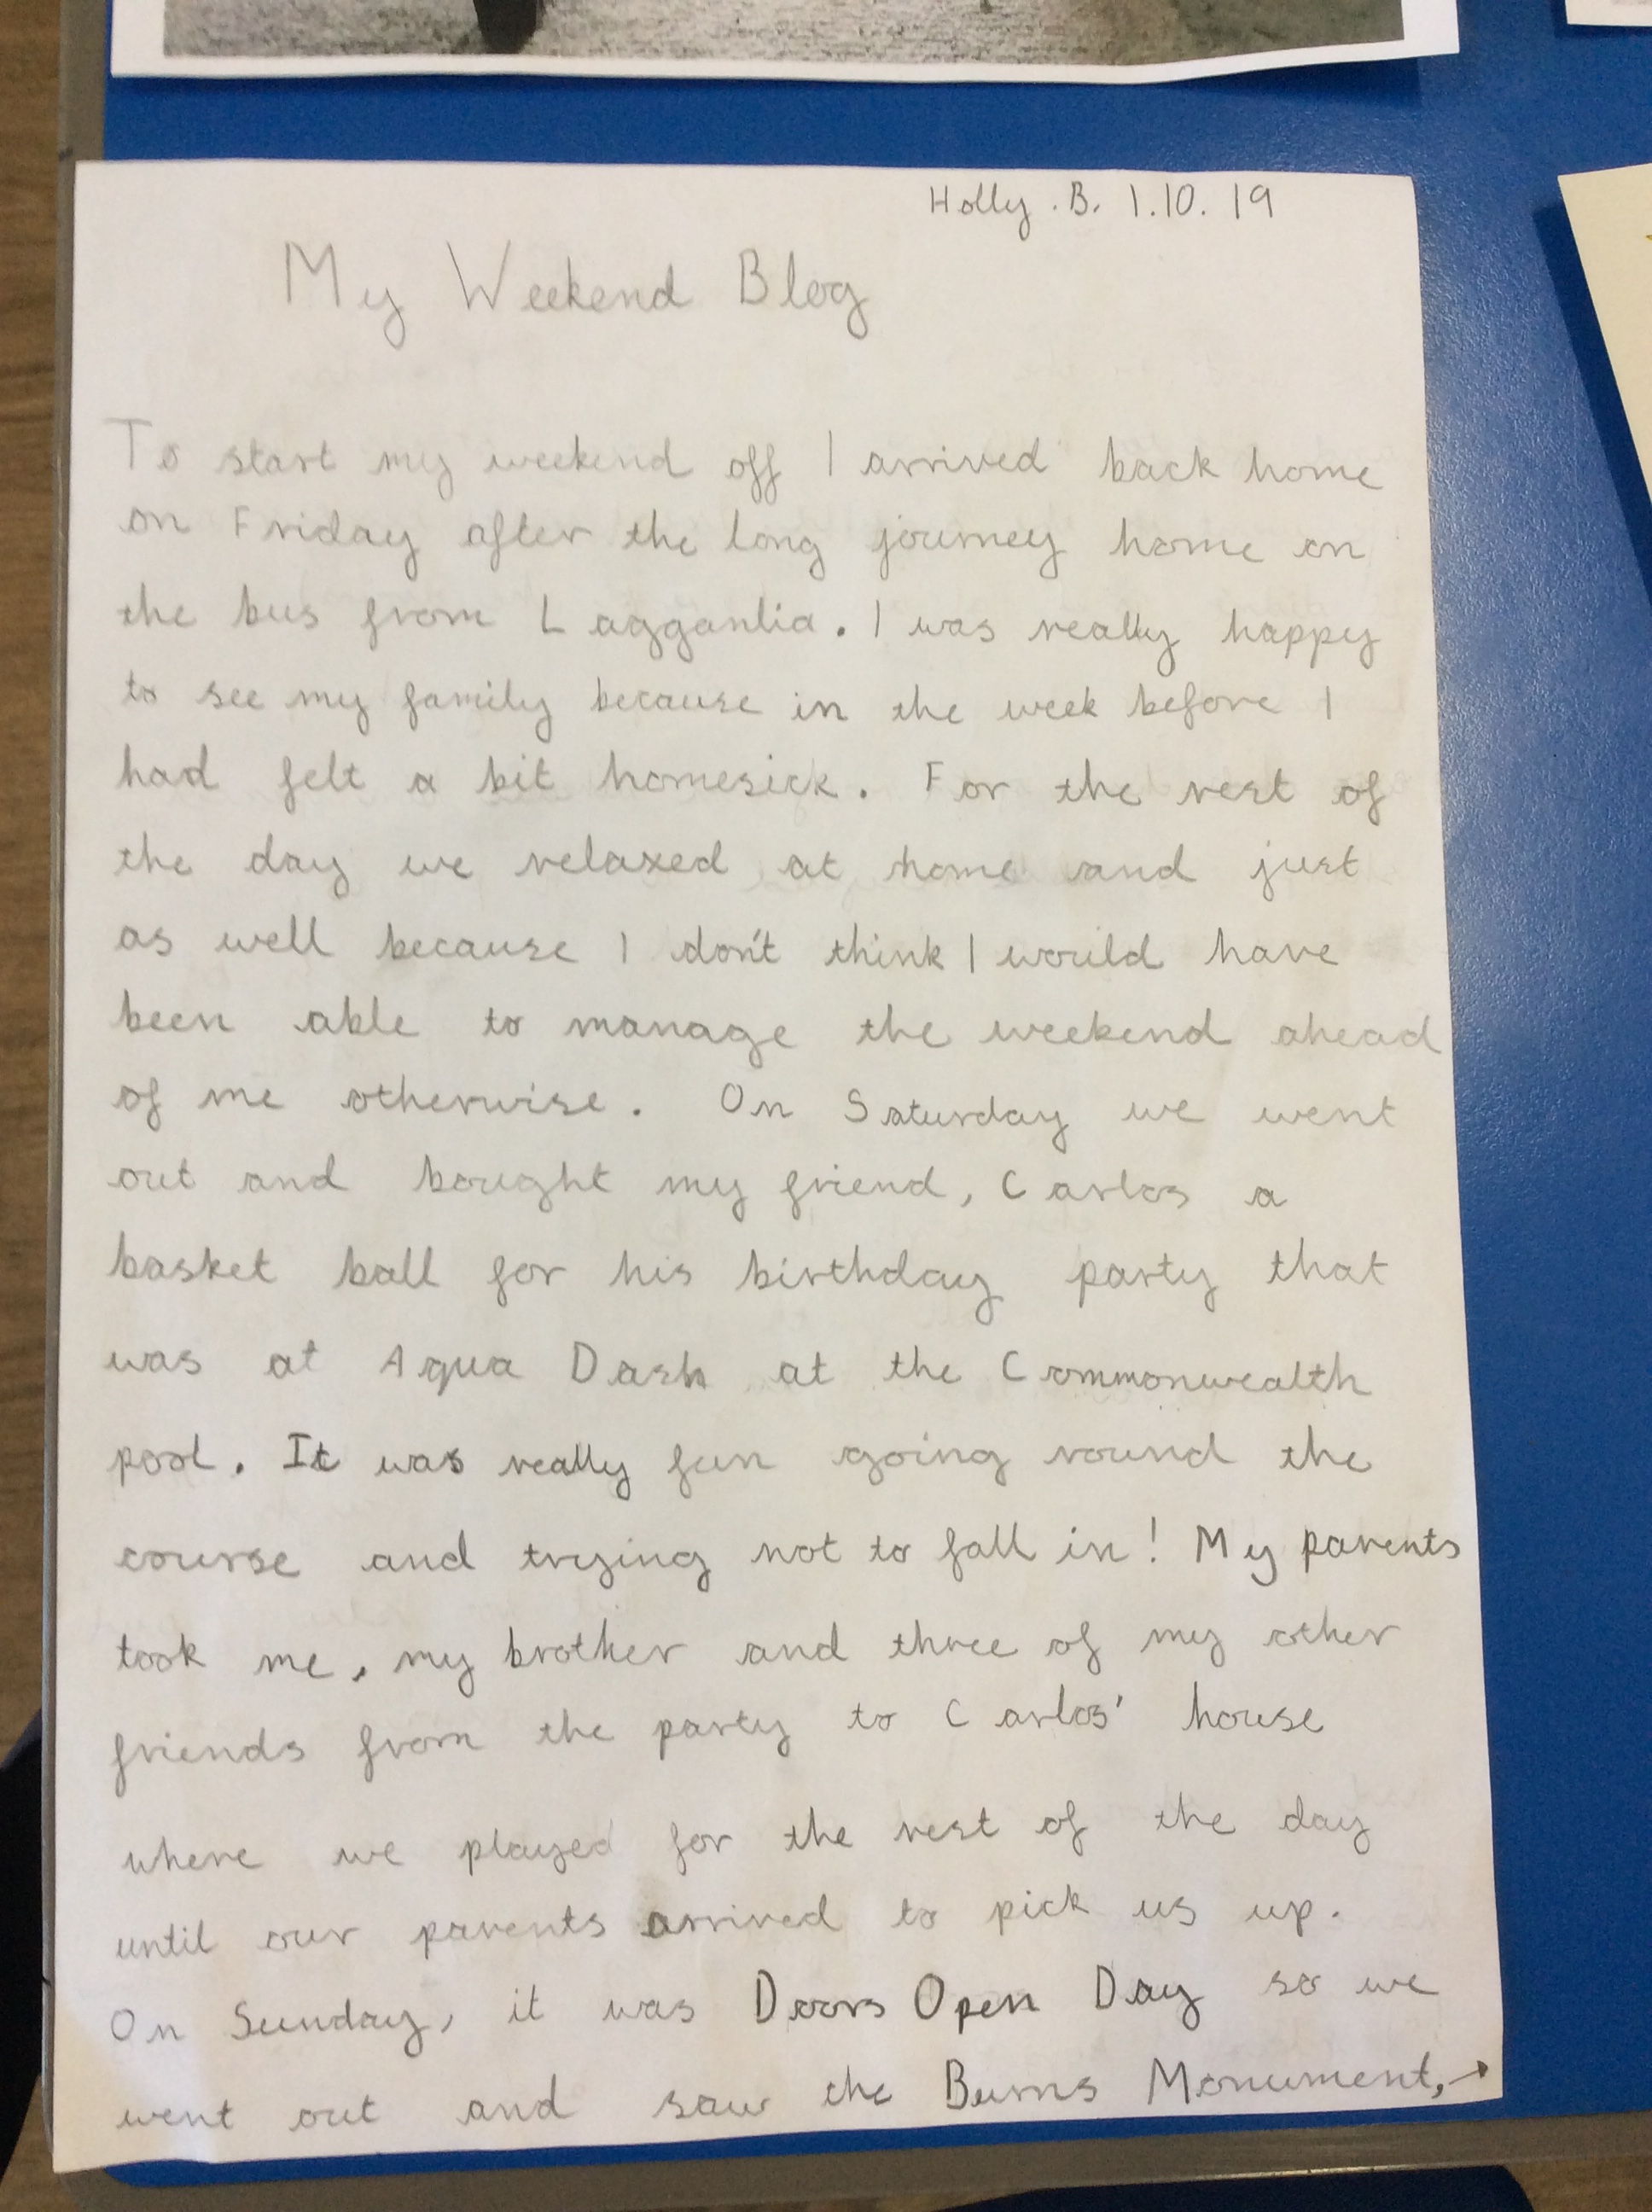 Holly . B. 1.10. 19
My Weekend Blog
To start my weekend off I arrived back home
on Friday after the long journey home on
the bus from Lagganlia. I was really happy
to see my family because in the week before I
had felt a bit homesick. For the rest of
the day we relaxed at home and just
as well because I don't think I would have
been able to manage the weekend ahead
of me otherwise. On Saturday we went
out and bought my friend, Carlos a
basket ball for his birthday party that
was at Aqua Dash at the Commonwealth
pool. It was really fun going round the
course and trying not to fall in! My parents
took me, my brother and three of my other
friends from the party to Carlos' house
where we played for the rest of the day
until our parents arrived to pick us up.
On Sunday, it was Doors Open Day so we
went out and saw the Burns Monument, →